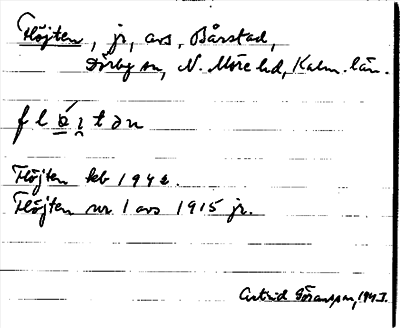 Flöjten, jr, avs. Bårstad,
Dörby sn, N. Möre hd, Kalm. län.
flǿi̯tən
Flöjten kb 1942.
Flöjten nr 1 avs 1915 jr.
Astrid Göransson, 1943.